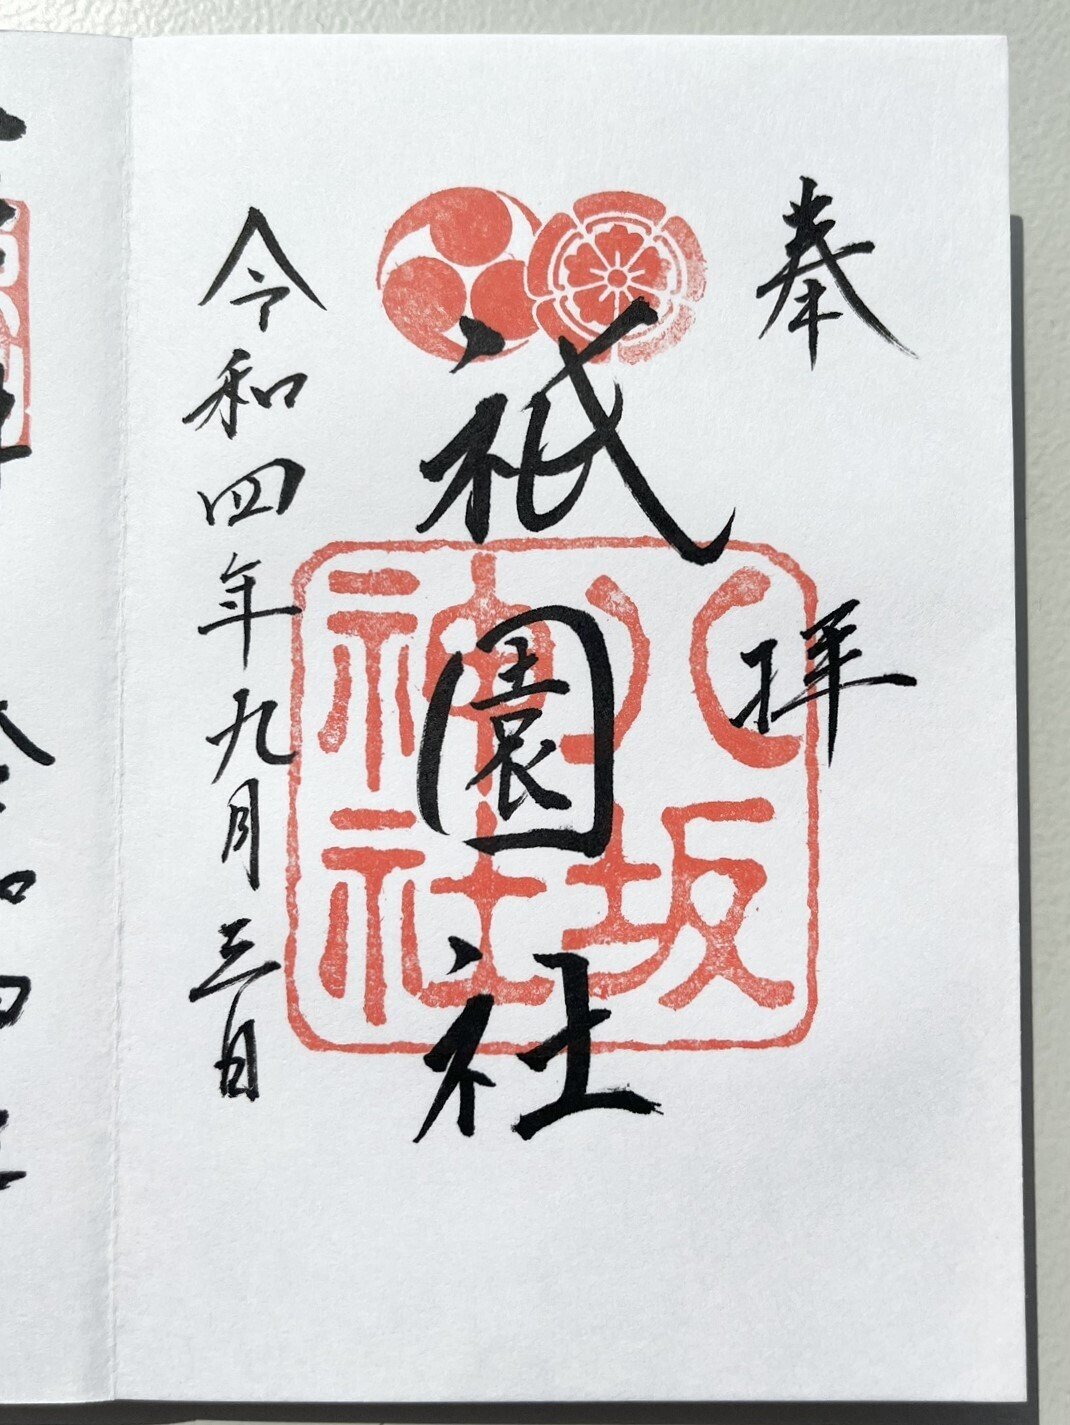 奉拝
祇園社
八坂
神社
令和四年九月三日